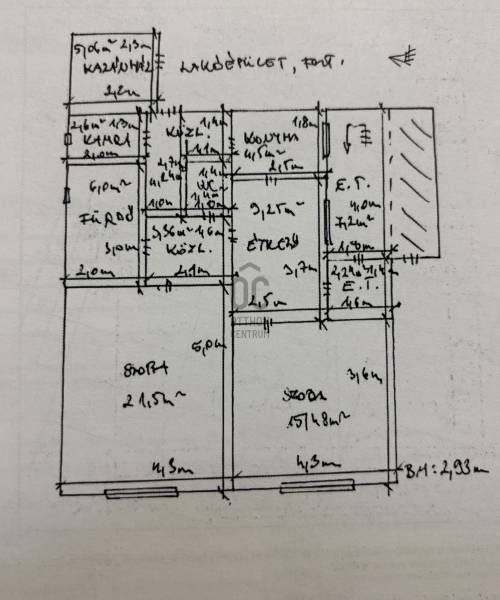 5,06m² 2,3m
KAZÁNHÁZ
2,2m
LAKÓÉPÜLET, FSZT.
2,6m² 1,3m
KAMRA
2,0m
KÖZL.
1,4m
1,1m
2,7m
4,24m²
1,0m
1,4m
WC
1,4m²
1,0m
KONYHA
1,8m
4,5m²
2,5m
6,0m²
FÜRDŐ
3,0m
2,0m
3,36m² 1,6m
KÖZL.
2,1m
9,25m²
ÉTKEZŐ
3,7m
2,5m
E.T.
4,0m
7,2m²
1,8m
2,24m² 1,4m
E.T.
1,6m
OC
OTTHON
CENTRUM
5,0m
SZOBA
21,5m²
4,3m
3,6m
SZOBA
15,48m²
4,3m
BM: 2,93m